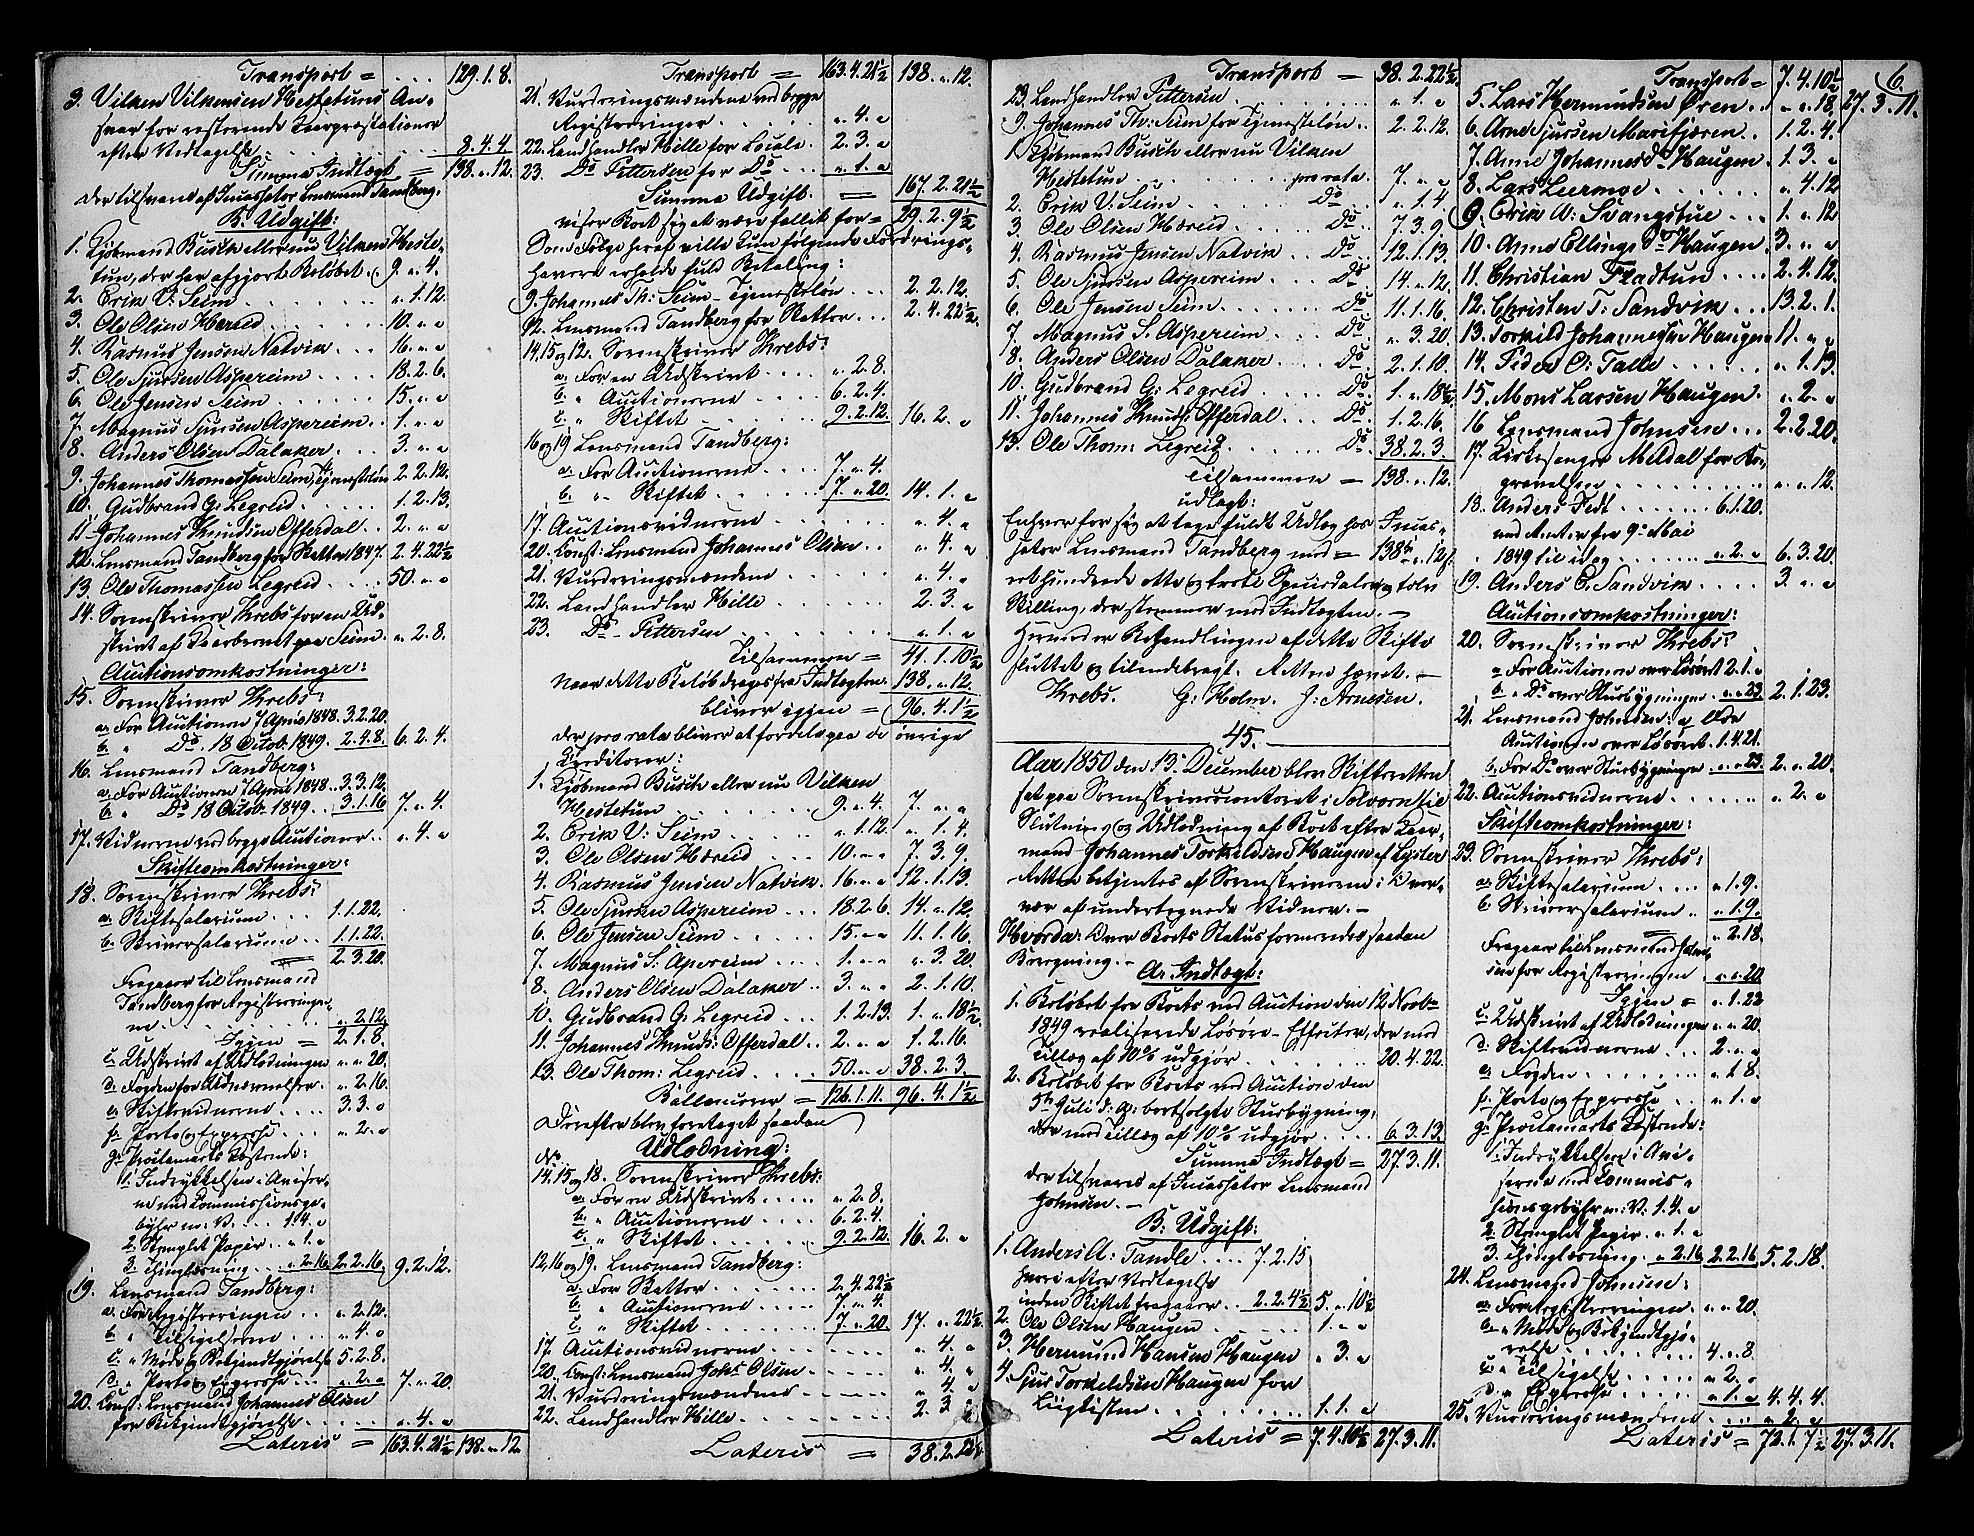 Transport = . . . 129.1.8.
3. Vilken Vilkensen Hestetuns An-
svar for resterende Leierpræstationer
efter Vedtagelse . . . 8.4.4
Summa Indtægt = 138.„.12.
der tilsvares af Incassator Lensmand Tandberg.
B. Udgift:
1. Kjøbmand Busch eller nu Vilken Heste-
tun, der har afgjort Beløbet . 9.„.4.
2. Erik V: Seim . . . „.1.12.
3. Ole Olsen Hæreid . . . 10.„.„
4. Rasmus Jensen Natvik . . . 16.„.„
5. Ole Sjursen Aspereim . . . 18.2.6.
6. Ole Jensen Seim . . . 15.„.„
7. Magnus Sjursen Aspereim . . 1.„.„
8. Anders Olsen Dalaker . . . 3.„.„
9. Johannes Thomassen Seim, Tjenesteløn 2.2.12.
10. Gudbrand G. Legreid . . . 1.2.13.
11. Johannes Knudsen Offerdal . . 2.„.„
12. Lensmand Tandberg for Skatter 1847. 2.4.22½
13. Ole Thomassen Legreid . . . 50.„.„
14. Sorenskriver Krebs for en Ud-
skrift af Leierbrevet paa Seim . „.2.8.
Auctionsomkostninger:
15. Sorenskriver Krebs:
a. For Auctionen 7 April 1848. 3.2.20.
b. „ Do. 18 Octob. 1849. 2.4.8. 6.2.4.
16. Lensmand Tandberg:
a. For Auctionen 7 April 1848 . . 3.3.12.
b. „ Do 18 Octob. 1849 . . 3.1.16 7.„.4.
17. Vidnerne ved begge Auctioner . . „.4.„
Skifteomkostninger:
18. Sorenskriver Krebs:
a. Skiftesalarium . . . 1.1.22.
b. Skriversalarium . . 1.1.22.
= 2.3.20.
Fragaaer til Lensmand
Tandberg for Registreringer-
ne . . . „.2.12.
Igjen = 2.1.8.
c. Udskrift af Udlodningen „.„.20.
d. Fogden for Udnævnelser . „.2.16.
e. Skiftevidnerne . . . 3.3.„
f. Porto og Expresse . . . „.2.„
g. Proclamaets Kostende:
1. Indrykkelsen i Aviser-
ne med Commissionsge-
byhr m: V. . . . 1.4.„
2. Stemplet Papir . . „.1.„
3. Thinglæsning . . „.2.16. 2.2.16. 9.2.12.
19. Lensmand Tandberg:
a. For Registreringen . . „.2.12.
b. „ Tilsigelserne . . „.4.„
c. „ Møde og Bekjendtgjørelse 5.2.8.
d. „ Porto og Expresse . . „.2.„ 7.„.20.
20. Const: Lensmand Johannes Olsen
for Bekjendtgjørelse . . . „.4.„
Lateris = 163.4.21½ 138.„.12
Transport = 163.4.21½ 138.„.12.
21. Vurderingsmændene ved begge
Registreringer . . . „.4.„
22. Landhandler Hille for Locale . 2.3.„
23. Do. Pettersen for Do . . . „.1.„
Summa Udgift = 167.2.21½
viser Boet sig at være fallit for = 29.2.9½
Som Følge heraf ville kun følgende Fordrings-
havere erholde fuld Betaling:
9. Johannes Th: Seim - Tjenesteløn . . . 2.2.12.
12. Lensmand Tandberg for Skatter . . . 2.4.22½
14, 15 og 18. Sorenskriver Krebs:
a. For en Udskrift . . . „.2.8.
b. „ Auctionerne . . . 6.2.4.
c. „ Skiftet . . . 9.2.12. 16.2.„
16 og 19 Lensmand Tandberg:
a. For Auctionerne . . . 7.„.4.
b. „ Skiftet . . . 7.„.20. 14.1.„
17. Auctionsvidnerne . . . „.4.„
20. Const: Lensmand Johannes Olsen . . „.4.„
21. Vurderingsmændene . . . „.4.„
22. Landhandler Hille . . . 2.3.„
23. Do. Pettersen . . . „.1.„
Tilsammen = 41.1.10½
Naar dette Beløb drages fra Indtægten 138.„.12.
bliver igjen = 96.4.1½
der pro rata bliver at fordele paa de øvrige
Creditorer:
1. Kjøbmand Busch eller nu Vilken
Hestetun . . . 9.„.4. 7.„.„
2. Erik V: Seim . . . „.1.12. „.1.4.
3. Ole Olsen Hæreid . . . 10.„.„ 7.3.9.
4. Rasmus Jensen Natvik . 16.„.„ 12.1.13.
5. Ole Sjursen Aspereim . . . 18.2.6. 14.„.12.
6. Ole Jensen Seim . . . 15.„.„ 11.1.16.
7. Magnus S: Apereim . . . 1.„.„ „.3.20.
8. Anders Olsen Dalaker . . 3.„.„ 2.1.10.
10. Gudbrand G. Legreid . . . 1.2.13. 1.„.18½.
11. Johannes Knuds: Offerdal . . 2.„.„ 1.2.16.
13. Ole Thom: Legreid . . . 50.„.„ 38.2.3.
Ballancerer = 126.1.11. 96.4.1½
Derefter blev foretaget saadan
Udlodning:
No.
14, 15 og 18. Sorenskriver Krebs:
a. For en Udskrift . . . „.2.8.
b. „ Auctionerne . . . 6.2.4.
c. „ Skiftet . . . 9.2.12. 16.2.„
12, 16 og 19. Lensmand Tandberg:
a. For Skatter . . . 2.4.22½
b. „ Auctionerne . . . 7.„.4.
c. „ Skiftet . . . 7.„.20. 17.„.22½.
17. Auctionsvidnerne . . . „.4.„
20. Const: Lensmand Johs. Olsen . . . „.4.„
21. Vurderingsmændene . . . „.4.„
22. Landhandler Hille . . . 2.3.„
Lateris = 38.2.22½
Transport = 38.2.22½.
23. Landhandler Pettersen . . . „.1.„
9. Johannes Th: Seim for Tjenesteløn . . 2.2.12.
1. Kjøbmand Busch eller nu Vilken
Hestetun . . . pro rata . 7.„.„
2. Erik V. Seim . . . Do . . „.1.4
3. Ole Olsen Hæreid . . . Do. . 7.3.9.
4. Rasmus Jensen Natvik . . Do . 12.1.13.
5. Ole Sjursen Aspereim . . . Do 14.„.12.
6. Ole Jensen Seim . . . Do. 11.1.16.
7. Magnus S. Aspereim . . . Do. „.3.20.
8. Anders Olsen Dalaker . . . Do. 2.1.10.
10. Gudbrand G: Legreid . . . Do. 1.„.18½.
11. Johannes Knuds: Offerdal . . Do. 1.2.16.
13. Ole Thom: Legreid . . . Do. 38.2.3.
Tilsammen = 138.„.12.
udlagt:
Enhver for sig at tage fuldt Udlæg hos Incas-
sator Lensmand Tandberg med = 138 „.12.
et hundrede otte og treti Speciedaler og tolv
Skilling, der stemmer med Indtægten. -
Hermed er Behandlingen af dette Skifte
sluttet og tilendebragt. Retten hævet. -
Krebs. G: Holm. J: Arnesen.
45.
Aar 1850 den 13. December blev Skifteretten
sat paa Sorenskrivercontoret i Solvorn til
Slutning og Udlodning af Boet efter Leier-
mand Johannes Torkildsen Haugen af Lyster
Retten betjentes af Sorenskriveren i Over-
vær af undertegnede Vidner. -
Hvorda: Over Boets Status formeredes saadan
Beregning. -
A. Indtægt:
1. Beløbet for Boets ved Auction den 12 Novb.
1849 realiserede Løsøre-Effecter, der med
Tillæg af 10% udgjør . . . 20.4.22.
2. Beløbet for Boets ved Auction den
5te Juli d: A: bortsolgte Stuebygning,
der med Tillæg af 10% udgjør . . . 6.3.13.
Summa Indtægt = 27.3.11.
der tilsvares af Incassator Lensmand
Johnsen. -
B. Udgift:
1. Anders A: Tandle . . . 7.2.15
hvori efter Vedtagelse
inden Skiftet fragaaer . . 2.2.4½ 5.„.10½
2. Ole Olsen Haugen . . . 1.„.„
3. Hermund Hansen Haugen „.3.„
4. Sjur Torkeldsen Haugen for
Liigkisten . . . 1.1.„
Lateris = 7.4.10½ 27.3.11.
6.
Transport = 7.4.10½ 27.3.11.
5. Lars Hermundsen Øren . . „.„.18.
6. Arne Sjursen Marifjæren . . 1.2.4.
7. Anne Johannesdr. Haugen . 1.3.„
8. Lars Leermoe . . . „.4.12
9. Erik A: Svangstue . . . 1.„.12
10. Anne Ellingsdr. Haugen . 3.„.„
11. Christian Fladtun . . . 2.4.12.
12. Christen T: Sandvik . . . 13.2.1.
13. Torkild Johannessen Haugen 11.„.„
14. Peder O: Talle . . . „.1.13.
15. Mons Larsen Haugen . „.2.„
16 Lensmand Johnsen . . . 2.2.20.
17. Kirkesanger Meldal for Be-
gravelsen . . . „.„.12.
18. Anders Fedt . . . 6.1.20.
med Renter fra 9. Mai
1849 til idag . . . „.2.„ 6.3.20.
19. Anders C. Sandvik . . . 3.„.„
Auctionsomkostninger:
20. Sorenskriver Krebs:
a For Auctionen over Løsøret 2.1.„
b. „ Do over Stuebygningen . „.„.23 2.1.23.
21. Lensmand Johnsen: a For
Auctionen over Løsøret . 1.4.21.
b. For Do over Stuebygningen „.„.23. 2.„.20.
22. Auctionsvidnerne . . . „.2.„
Skifteomkostninger:
23. Sorenskriver Krebs:
a. Skiftesalarium . . . „.1.9.
b. Skriversalarium . . „.1.9.
= „.2.18.
Fragaaer til Lensmand John-
sen for Registreringen „.„.20
Igjen = „.1.22
c. Udskrift af Udlodningen „.„.20.
d. Skiftevidnerne . . . 2.„.„
e. Fogden . . . „.1.8.
f. Porto og Expresse . . . „.1.„
g. Proclamaets Kostende:
1. Indrykkelsen i Avi-
serne med Commis-
sionsgebyhr m: V. 1.4.„
2. Stemplet Papir . „.1.„
3. Thinglæsning . „.2.16. 2.2.16. 5.2.18.
24. Lensmand Johnsen:
a. For Registreringen . „.„.20.
b. „ Møde og Bekjendtgjø-
relse . . . 4.„.8.
c. „ Tilsigelse . . . „.2.„
d. „ Expresse . . . „.1.„ 4.4.4.
25. Vurderingsmændene . . . „.2.„
Lateris = 72.1.7½ 27.3.11.